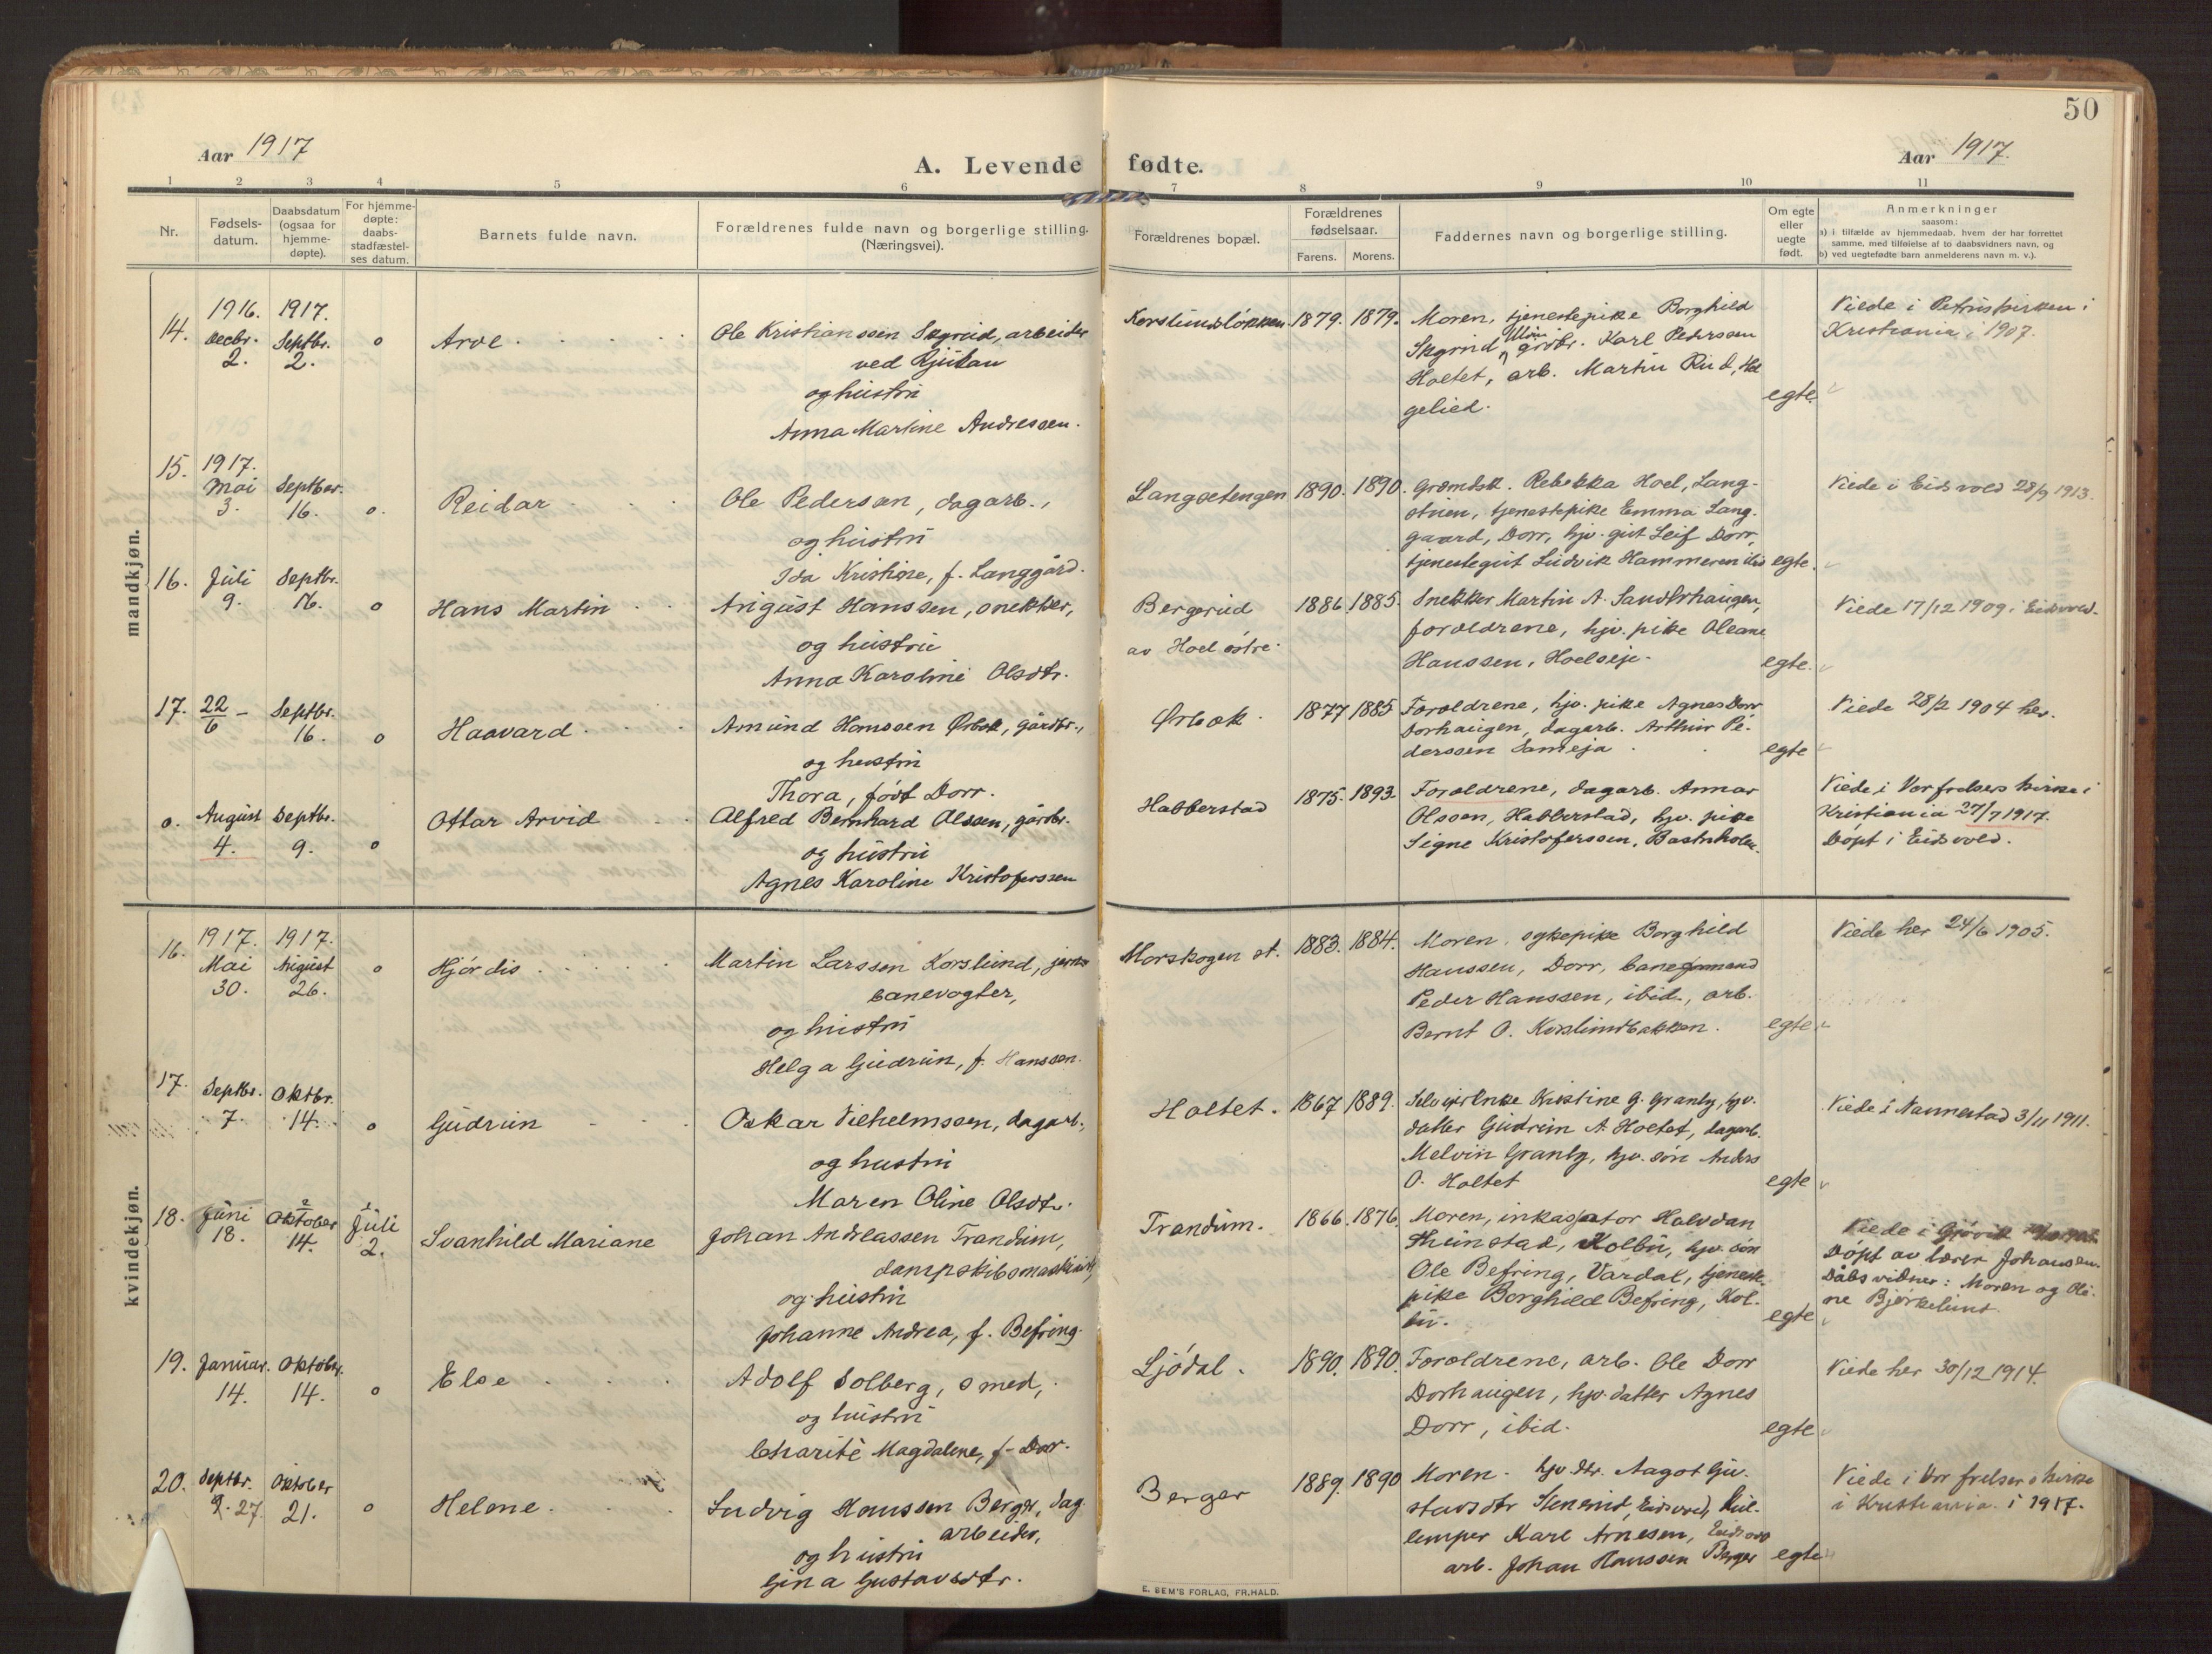 50
Aar 1917
A. Levende fødte.
Aar 1917.
1 2 3 4 5 6 7 8 9 10 11
Nr.
Fødsels-
datum.
Daabsdatum
(ogsaa for
hjemme-
døpte).
For hjemme-
døpte:
daabs-
stadfæstel-
ses datum.
Barnets fulde navn.
Forældrenes fulde navn og borgerlige stilling.
(Næringsvei).
Forældrenes bopæl.
Forældrenes
fødselsaar.
Farens. Morens.
Faddernes navn og borgerlige stilling.
Om egte
eller
uegte
født.
Anmerkninger
saasom:
a) i tilfælde av hjemmedaab, hvem der har forrettet
samme, med tilføielse af to daabsvidners navn, og
b) ved uegtefødte barn anmelderens navn m. v.).
mandkjøn.
14.
1916.
Decbr.
2.
1917.
Septbr.
2.
o
Arve
Ole Kristianssen Skgrud, arbeider
ved Rjukan
og hustru
Anna Martine Andressen.
Korslundløkken
1879. 1879.
Moren, tjenestepike Borghild
gårdbr. Karl Pederssen
Holtet, arb. Martin Rud, Hel
gelied.
egte.
Viede i Petruskirken i
Kristiania i 1907.
15.
1917.
Mai
3.
Septber.
16.
o.
Reidar
Ole Pederssen, dagarb.,
og hustru
Ida Kristine, f. Langgård.
Langsetengen
1890. 1890.
Grændsk. Rebekka Hoel, Lang-
stuen, tjenestepike Emma Lang-
gaard, Dorr, hjv. gut Leif Dorr,
tjenestegut Ludvik Hammeren ibid
egte.
Viede i Eidsvold 28/9 1913.
16.
Juli
9.
Septbr.
16.
o
Hans Martin
August Hanssen, snekker,
og hustru
Anna Karoline Olsdtr.
Bergerud
av Hoel østre.
1886. 1885.
Snekker Martin A. Sanderhaugen,
foreldrene, hjv. pike Oleane
Hanssen, Hoelseje.
egte.
Viede 17/12 1909 i Eidsvold.
17.
22/6 -
Septbr.
16.
o
Haavard
Amund Hanssen Ørbek, gårdbr.,
og hustru
Thora, født Dorr.
Ørbæk.
1877 1885
Foreldrene, hjv. pike Agnes Dorr
Dorhaugen, dagarb. Arthur Pe-
derssen Sameja
egte
Viede 28/2 1904 her.
o.
August
4.
Septbr.
9.
o
Ottar Arvid
Alfred Bernhard Olssen, gårdbr.
og hustru
Agnes Karoline Kristoferssen
Habberstad
1875. 1893.
Foreldrene, dagarb. Annar
Olssen, Habberstad, hjv. pike
Signe Kristoferssen, Bastuholen.
Viede i Vor frelsers kirke i
Kristiania 27/7 1917.
Døpt i Eidsvold.
kvindekjøn.
16.
1917.
Mai
30.
1917.
August
26.
o
Hjørdis
Martin Larssen Korslund, jern
banevogter,
og hustru
Helga Gudrun, f. Hanssen.
Morskogen st.
1883. 1884.
Moren, sykepike Borghild
Hanssen, Dorr, baneformand
Peder Hanssen, ibid., arb.
Bernt O. Korslundbakken.
egte
Viede her 24/6 1905.
17.
Septbr.
7.
Oktbr.
14.
o
Gudrun
Oskar Vilhelmssen, dagarb.,
og hustru
Maren Oline Olsdtr.
Holtet.
1867 1889.
Kristine G. Granby, hjv.
datter Gudrun A. Holtet, dagarb.
Melvin Granby, hjv. søn Anders
O. Holtet
egte
Viede i Nannestad 3/11 1911.
18.
Juni
18.
Oktober
14.
Juli
2.
Svanhild Mariane
Johan Andreassen Trandum,
dampskibsmaskinist,
og hustru
Johanne Andrea, f. Befring.
Trandum.
1866. 1876.
Moren, inkassator Halvdan
Theinstad, Kolbu, hjv. søn
Ole Befring, Vardal, tjeneste
pike Borghild Befring, Kol-
bu.
egte
Viede i Gjøvik
Døpt av lærer Johansen.
Dåbsvidner: Moren og Oli-
ne Bjørkelund.
19.
Januar.
14.
Oktober.
14.
o
Else
Adolf Solberg, smed,
og hustru
Charité Magdalene, f. Dorr.
Ljødal.
1890. 1890.
Foreldrene, arb. Ole Dorr
Dorhaugen, hjv. datter Agnes
Dorr, ibid.
egte
Viede her 30/12 1914.
20.
Septbr.
27.
Oktober
21.
o
Helene
Ludvig Hanssen Berger, dag
arbeider,
og hustru
Gina Gustavsdtr.
Berger
1889. 1890
Moren. hjv. dtr. Aagot Gu-
stavsdtr Stensrud, Eidsvold, kul-
lemper Karl Arnesen, Eidsvold
arb. Johan Hanssen Berger
egte
Viede i Vor frelsers kirke
i Kristiania. i 1917.
E. SEM'S FORLAG, FR.HALD.